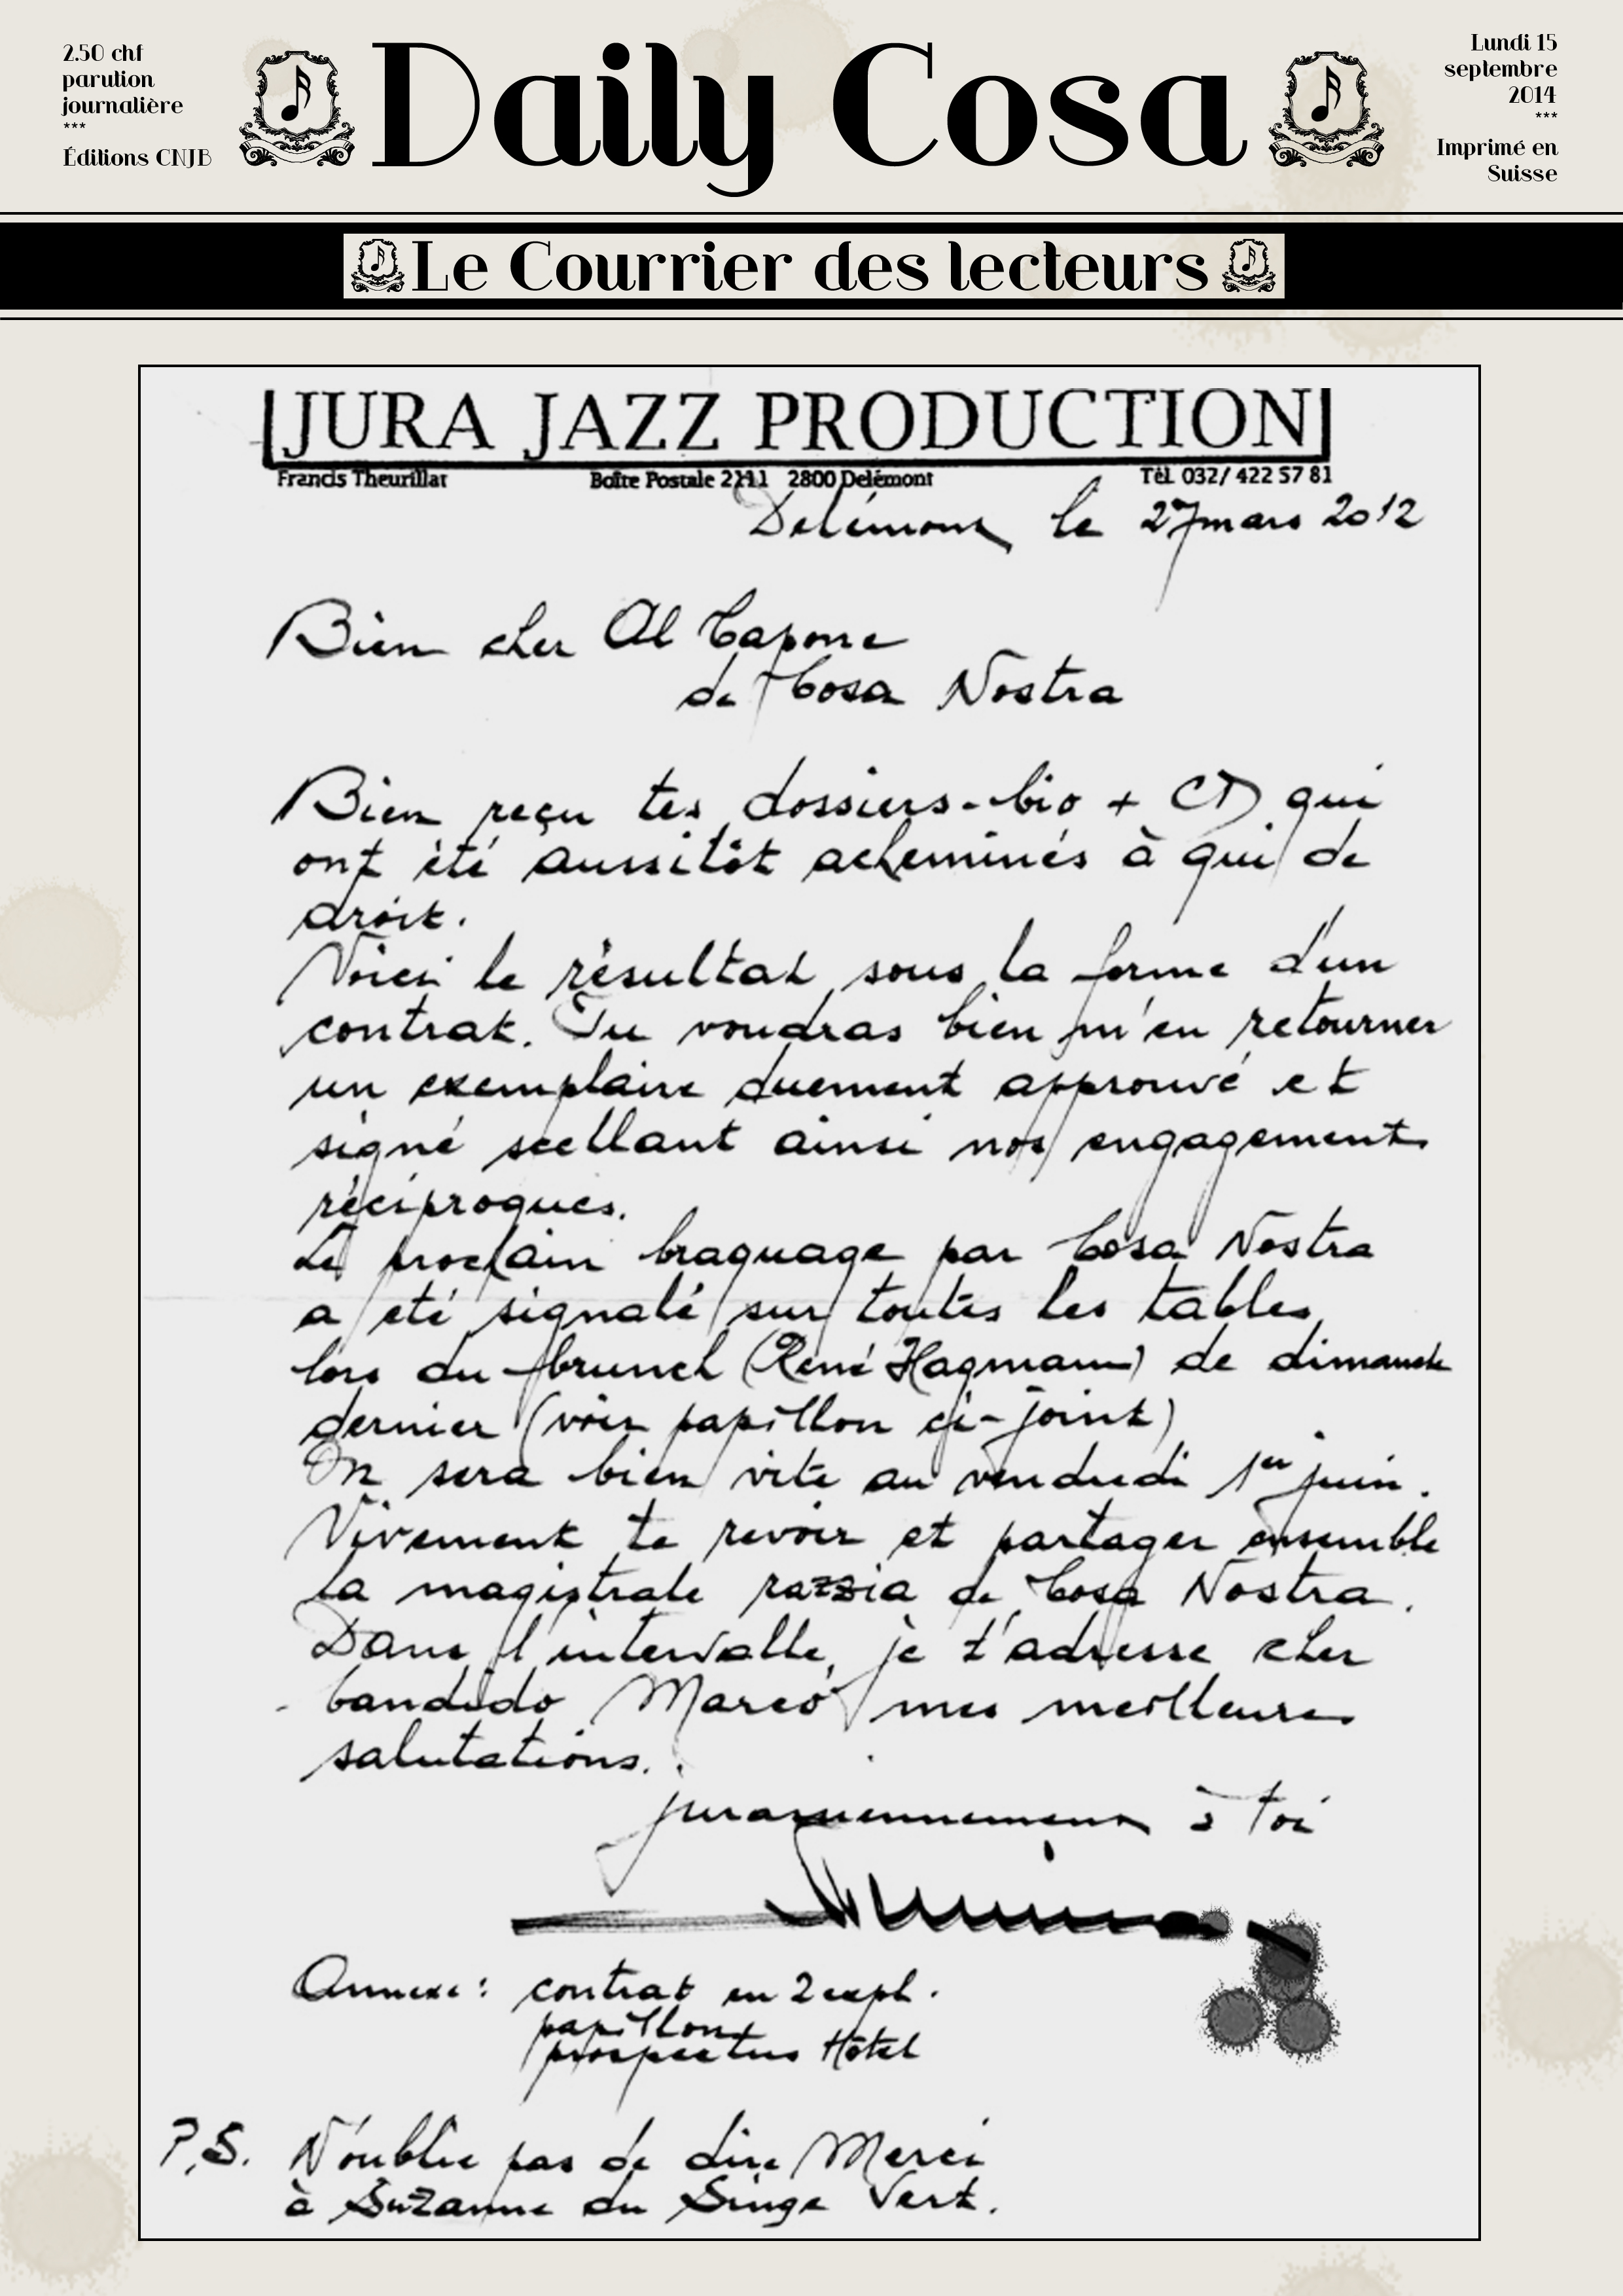 2.50 chf
parution
journalière
***
Éditions CNJB
Daily Cosa
Lundi 15
septembre
2014
***
Imprimé en
Suisse
Le Courrier des lecteurs
JURA JAZZ PRODUCTION
Francis Theurillat Boîte Postale 2111 2800 Delémont Tél. 032/ 422 57 81
Delémont le 27 mars 2012
Bien cher Al Capone
de Cosa Nostra
Bien reçu tes dossiers-bio + CD qui
ont été aussitôt acheminés à qui de
droit.
Voici le résultat sous la forme d'un
contrat. Tu voudras bien m'en retourner
un exemplaire duement approuvé et
signé scellant ainsi nos engagements
réciproques.
Le prochain braquage par Cosa Nostra
a été signalé sur toutes les tables
lors du brunch (René Hagmann) de dimanche
dernier (voir papillon ci-joint)
On sera bien vite au vendredi 1er juin.
Vivement te revoir et partager ensemble
la magistrale razzia de Cosa Nostra.
Dans l'intervalle, je t'adresse cher
bandido Marco mes meilleures
salutations.
jurassiennement à toi
Annexe : contrat en 2 expl.
papillons
prospectus Hôtel
P.S. N'oublie pas de dire Merci
à Suzanne du Singe Vert.